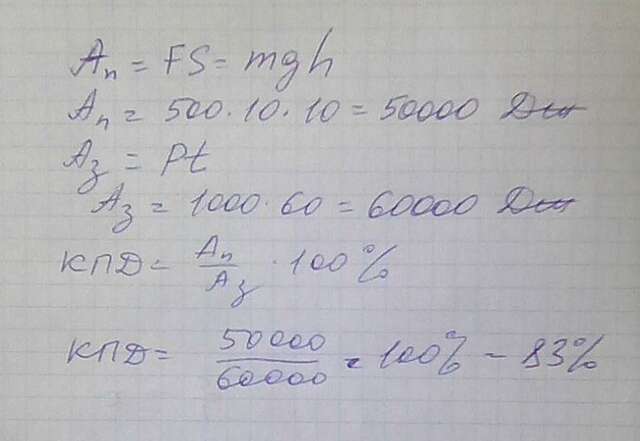 Aп = FS = mgh
Aп = 500 · 10 · 10 = 50000 Дж
Aз = Pt
Aз = 1000 · 60 = 60000 Дж
КПД = Aп/Aз · 100%
КПД = 50000/60000 · 100% = 83%